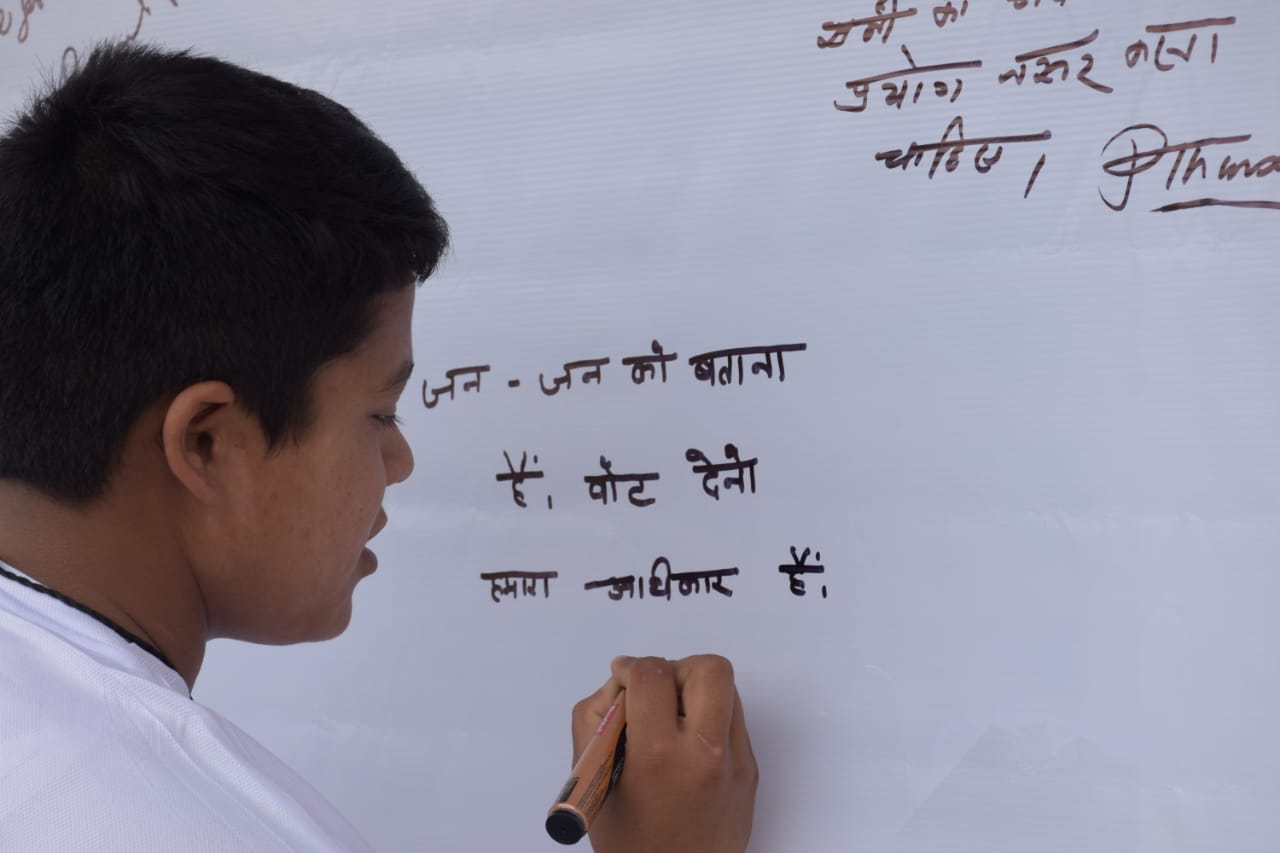 प्रयोग जरूर करना
चाहिए।
जन - जन को बताना
हैं। वोट देनो
हमारा अधिकार हैं।